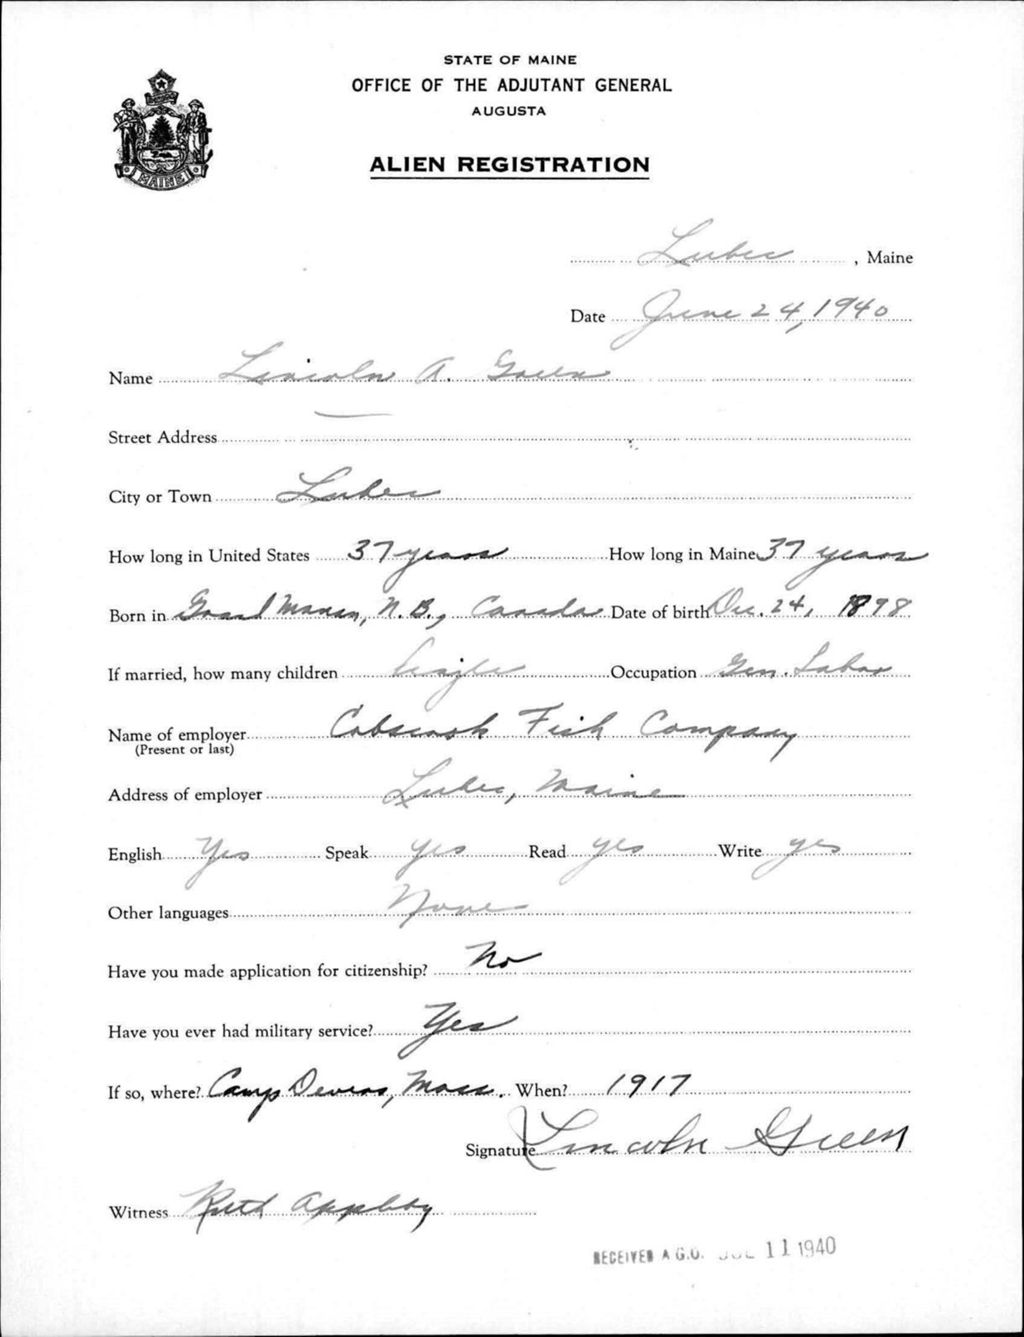 STATE OF MAINE
OFFICE OF THE ADJUTANT GENERAL
AUGUSTA
ALIEN REGISTRATION
MAINE
Lubec, Maine
Date June 24, 1940
Name Lincoln A. Green
Street Address —
City or Town Lubec
How long in United States 37 years How long in Maine 37 years
Born in Grand Manan, N.B., Canada Date of birth Dec. 24, 1898
If married, how many children Single Occupation Gen. Labor
Name of employer Cobscook Fish Company
(Present or last)
Address of employer Lubec, Maine
English Yes Speak yes Read yes Write yes
Other languages None
Have you made application for citizenship? No
Have you ever had military service? Yes
If so, where? Camp Devens, Mass. When? 1917
Signature Lincoln Green
Witness Ruth Appleby
RECEIVED A.G.O. JUL 11 1940